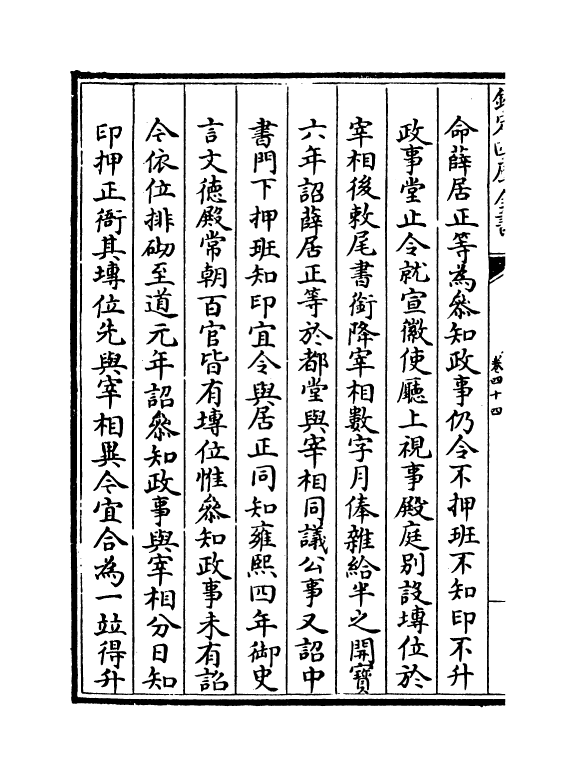 欽定四庫全書
卷四十四
命薛居正等為叅知政事仍令不押班不知印不升
政事堂止令就宣徽使廳上視事殿庭别設塼位於
宰相後敕尾書銜降宰相數字月俸雜給半之開寳
六年詔薛居正等於都堂與宰相同議公事又詔中
書門下押班知印宜令與居正同知雍熙四年御史
言文德殿常朝百官皆有塼位惟叅知政事未有詔
令依位排砌至道元年詔叅知政事與宰相分日知
印押正衙其塼位先與宰相異今宜合為一竝得升